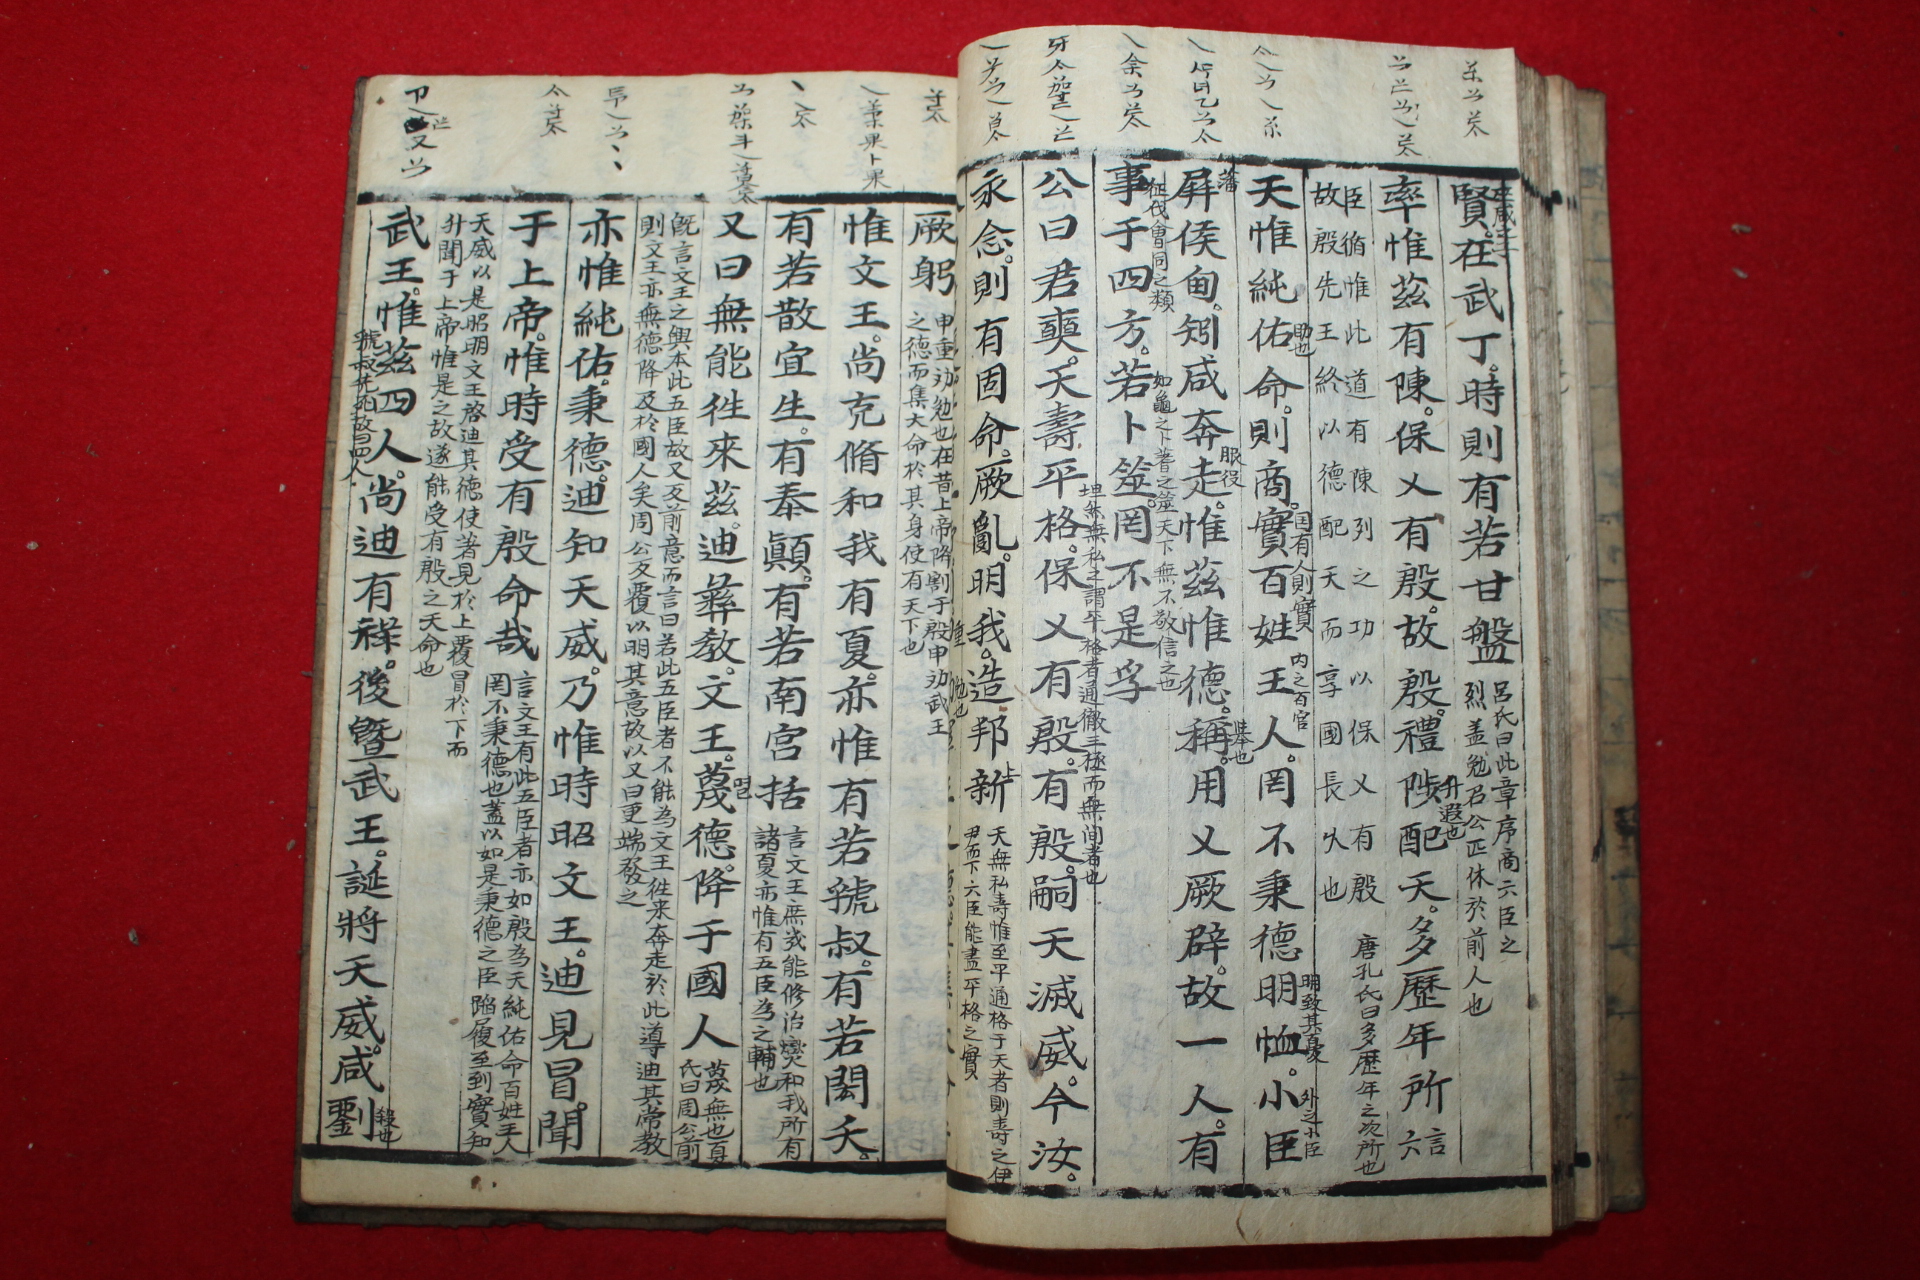 賢在武丁時則有若甘盤 呂氏曰此章序商六臣之
烈盖勉召公匹休於前人也
率惟茲有陳保乂有殷故殷禮陟配天多歷年所 言六
升遐也
臣循惟此道有陳列之功以保乂有殷
故殷先王終以德配天而享國長久也
唐孔氏曰多歷年之次所也
天惟純佑命則商實百姓王人罔不秉德明恤小臣
助也
国有人則實
內之百官
明致其憂
外之小臣
屛侯甸矧咸奔走惟茲惟德稱用乂厥辟故一人有
藩
服役
擧也
事于四方若卜筮罔不是孚
征伐會同之類
如龜之卜蓍之筮天下無不敬信之也
公曰君奭天壽平格保乂有殷有殷嗣天滅威今汝
坦然無私之謂平格者通徹三極而無間者也
永念則有固命厥亂明我造邦新
天無私壽惟至平通格于天者則壽之伊
尹而下六臣能盡平格之實
厥躬 申重劝勉也在昔上帝降割于殷申劝武王
之德而集大命於其身使有天下也
惟文王尚克脩和我有夏亦惟有若虢叔有若閎夭
有若散宜生有若泰顚有若南宮括
言文王庶幾能修治燮和我所有
諸夏亦惟有五臣為之輔也
又曰無能徃來茲迪彝敎文王蔑德降于國人
며
蔑無也夏
氏曰周公前
旣言文王之興本此五臣故又反前意而言曰若此五臣者不能為文王徃来奔走於此導迪其常教
則文王亦無德降及於國人矣周公反覆以明其意故以又曰更端發之
亦惟純佑秉德迪知天威乃惟時昭文王迪見冒聞
于上帝惟時受有殷命哉
言文王有此五臣者亦如殷為天純佑命百姓王人
罔不秉德也盖以如是秉德之臣蹈履至到實知
天威以是昭明文王啓迪其德使著見於上覆冒於下而
升聞于上帝惟是之故遂能受有殷之天命也
武王惟茲四人尚迪有祿後曁武王誕將天威咸劉
虢叔先死故曰四人
殺也